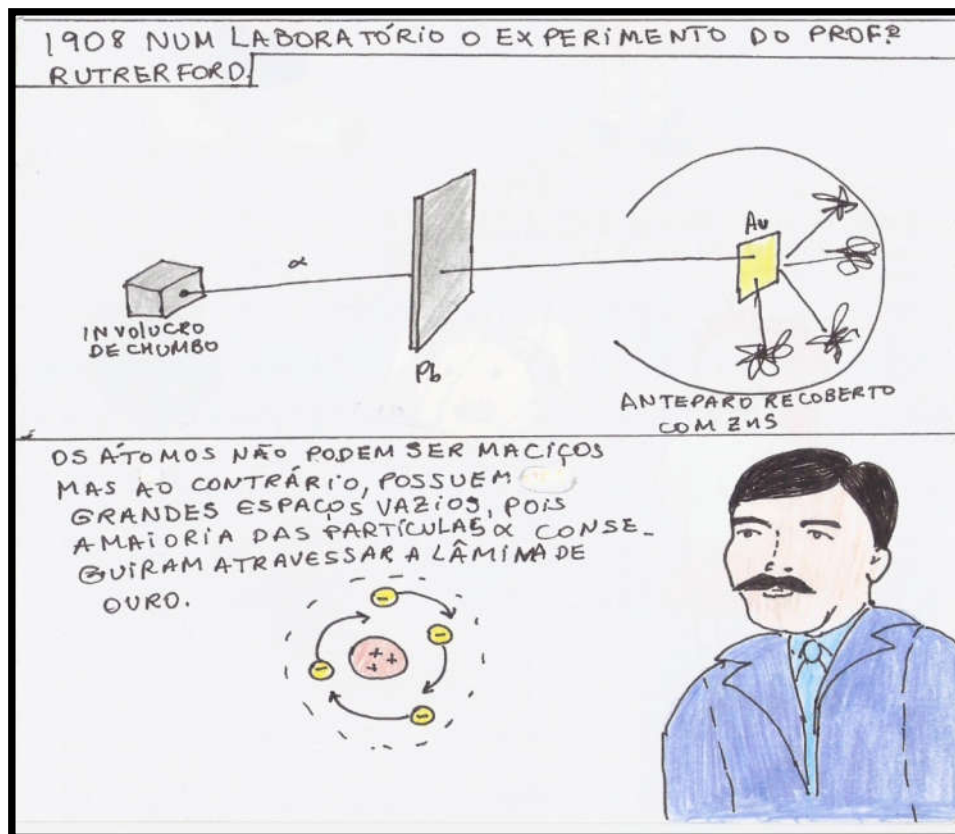 1908 NUM LABORATÓRIO O EXPERIMENTO DO PROFº
RUTRERFORD.
α
Au
INVOLUCRO
DE CHUMBO
Pb
ANTEPARO RECOBERTO
COM ZnS
OS ÁTOMOS NÃO PODEM SER MACIÇOS
MAS AO CONTRÁRIO, POSSUEM
GRANDES ESPAÇOS VAZIOS, POIS
A MAIORIA DAS PARTÍCULAS α CONSE-
GUIRAM ATRAVESSAR A LÂMINA DE
OURO.
- 
-
+ +
+
-
-